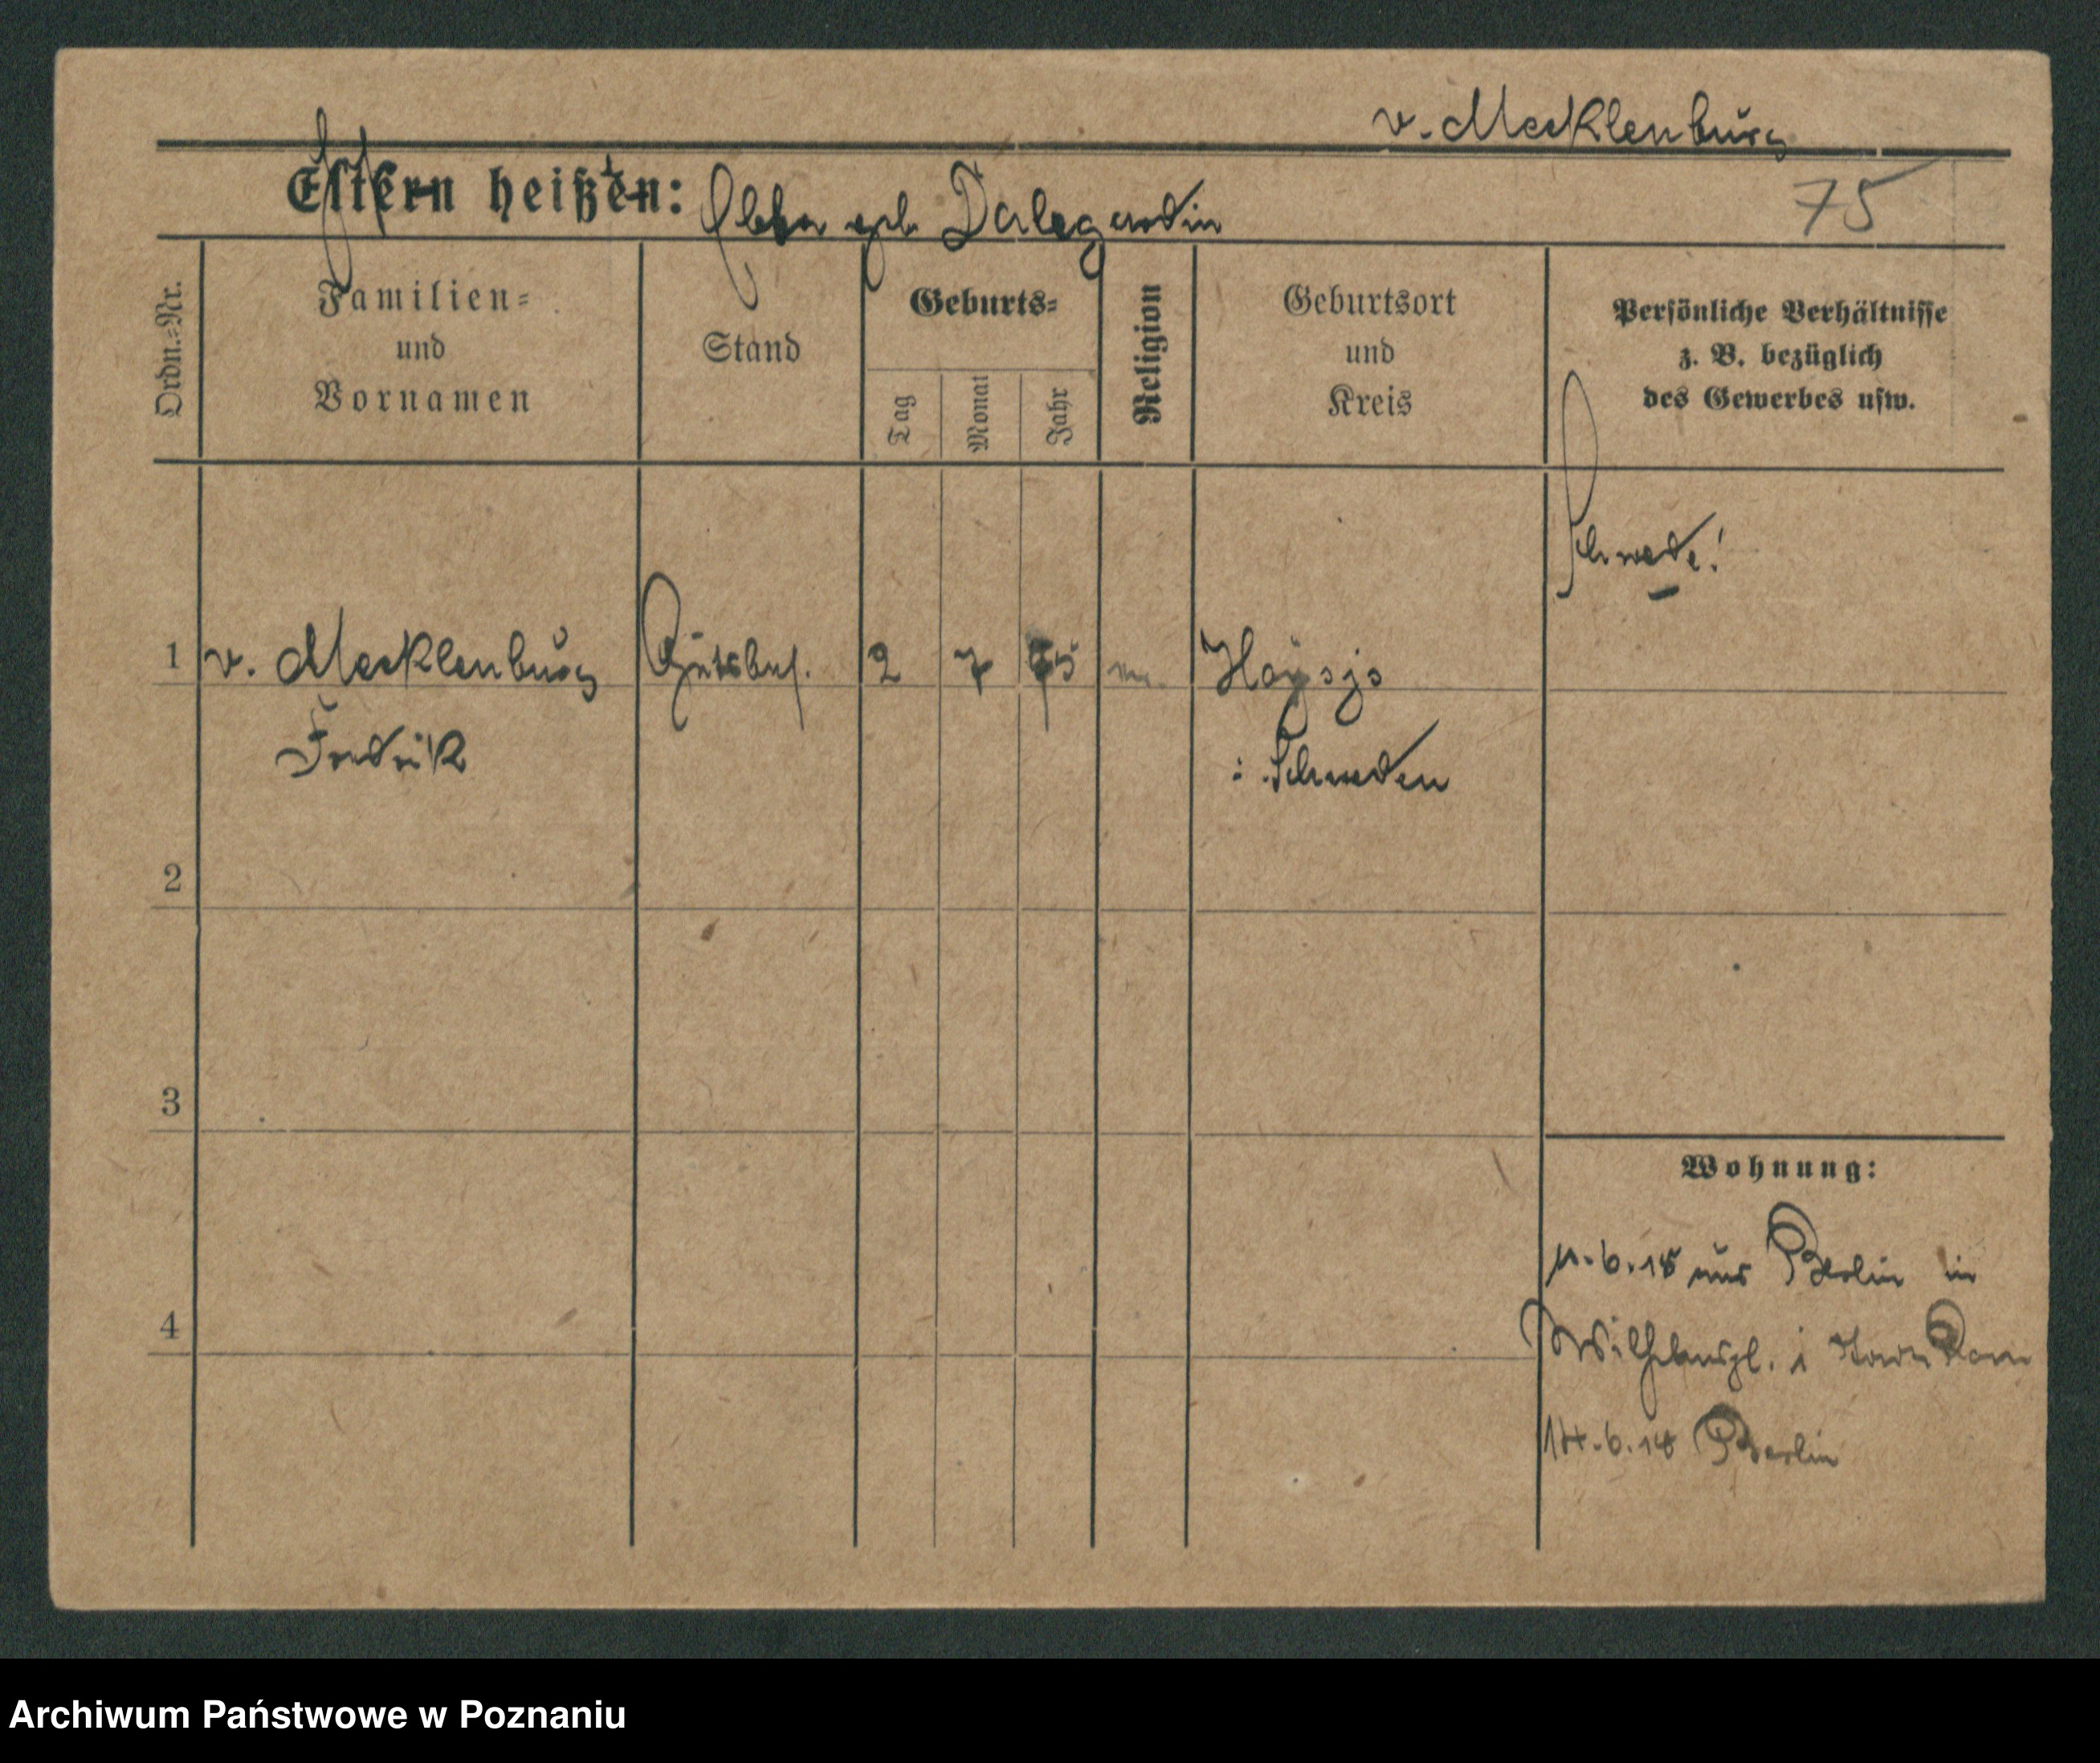 v. Mecklenburg
Eltern heißen: Ebba geb. Dalegardin
75
Ordn.=Nr.
Familien=
und
Vornamen
Stand
Geburts=
Tag
Monat
Jahr
Religion
Geburtsort
und
Kreis
Persönliche Verhältnisse
z. B. bezüglich
des Gewerbes usw.
Schwede!
1 v. Mecklenburg Gutsbes. 2 7 75
Fredrik
i. Schweden
2
3
4
Wohnung:
6.18 aus Berlin in
Wilhelmspl.
14.6.18 Berlin
Archiwum Państwowe w Poznaniu